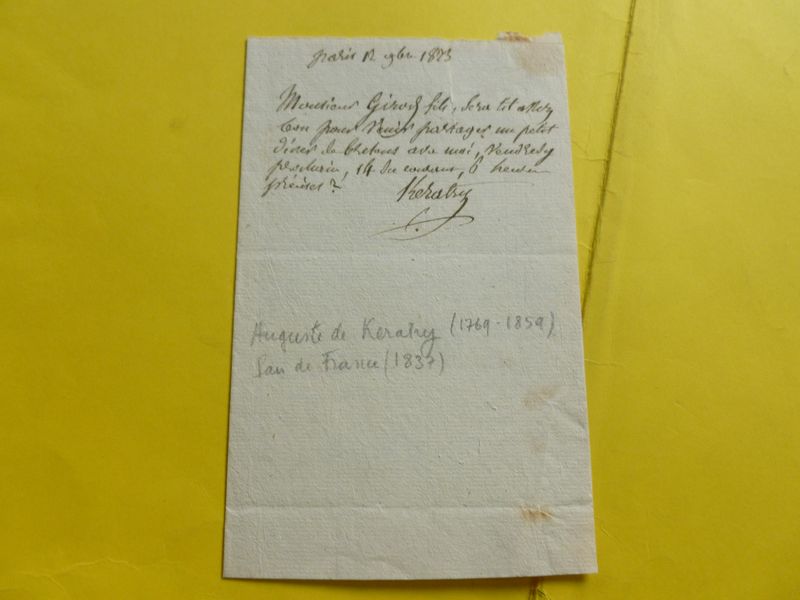 paris 12 9bre 1823
Monsieur Girod fils, sera t il assez
bon pour venir partager un petit
diner de bretons avec moi, vendredy
prochain, 14 du courant, 6 heures
précises?
Keratry
Auguste de Keratry (1769-1859)
Pair de France (1837)